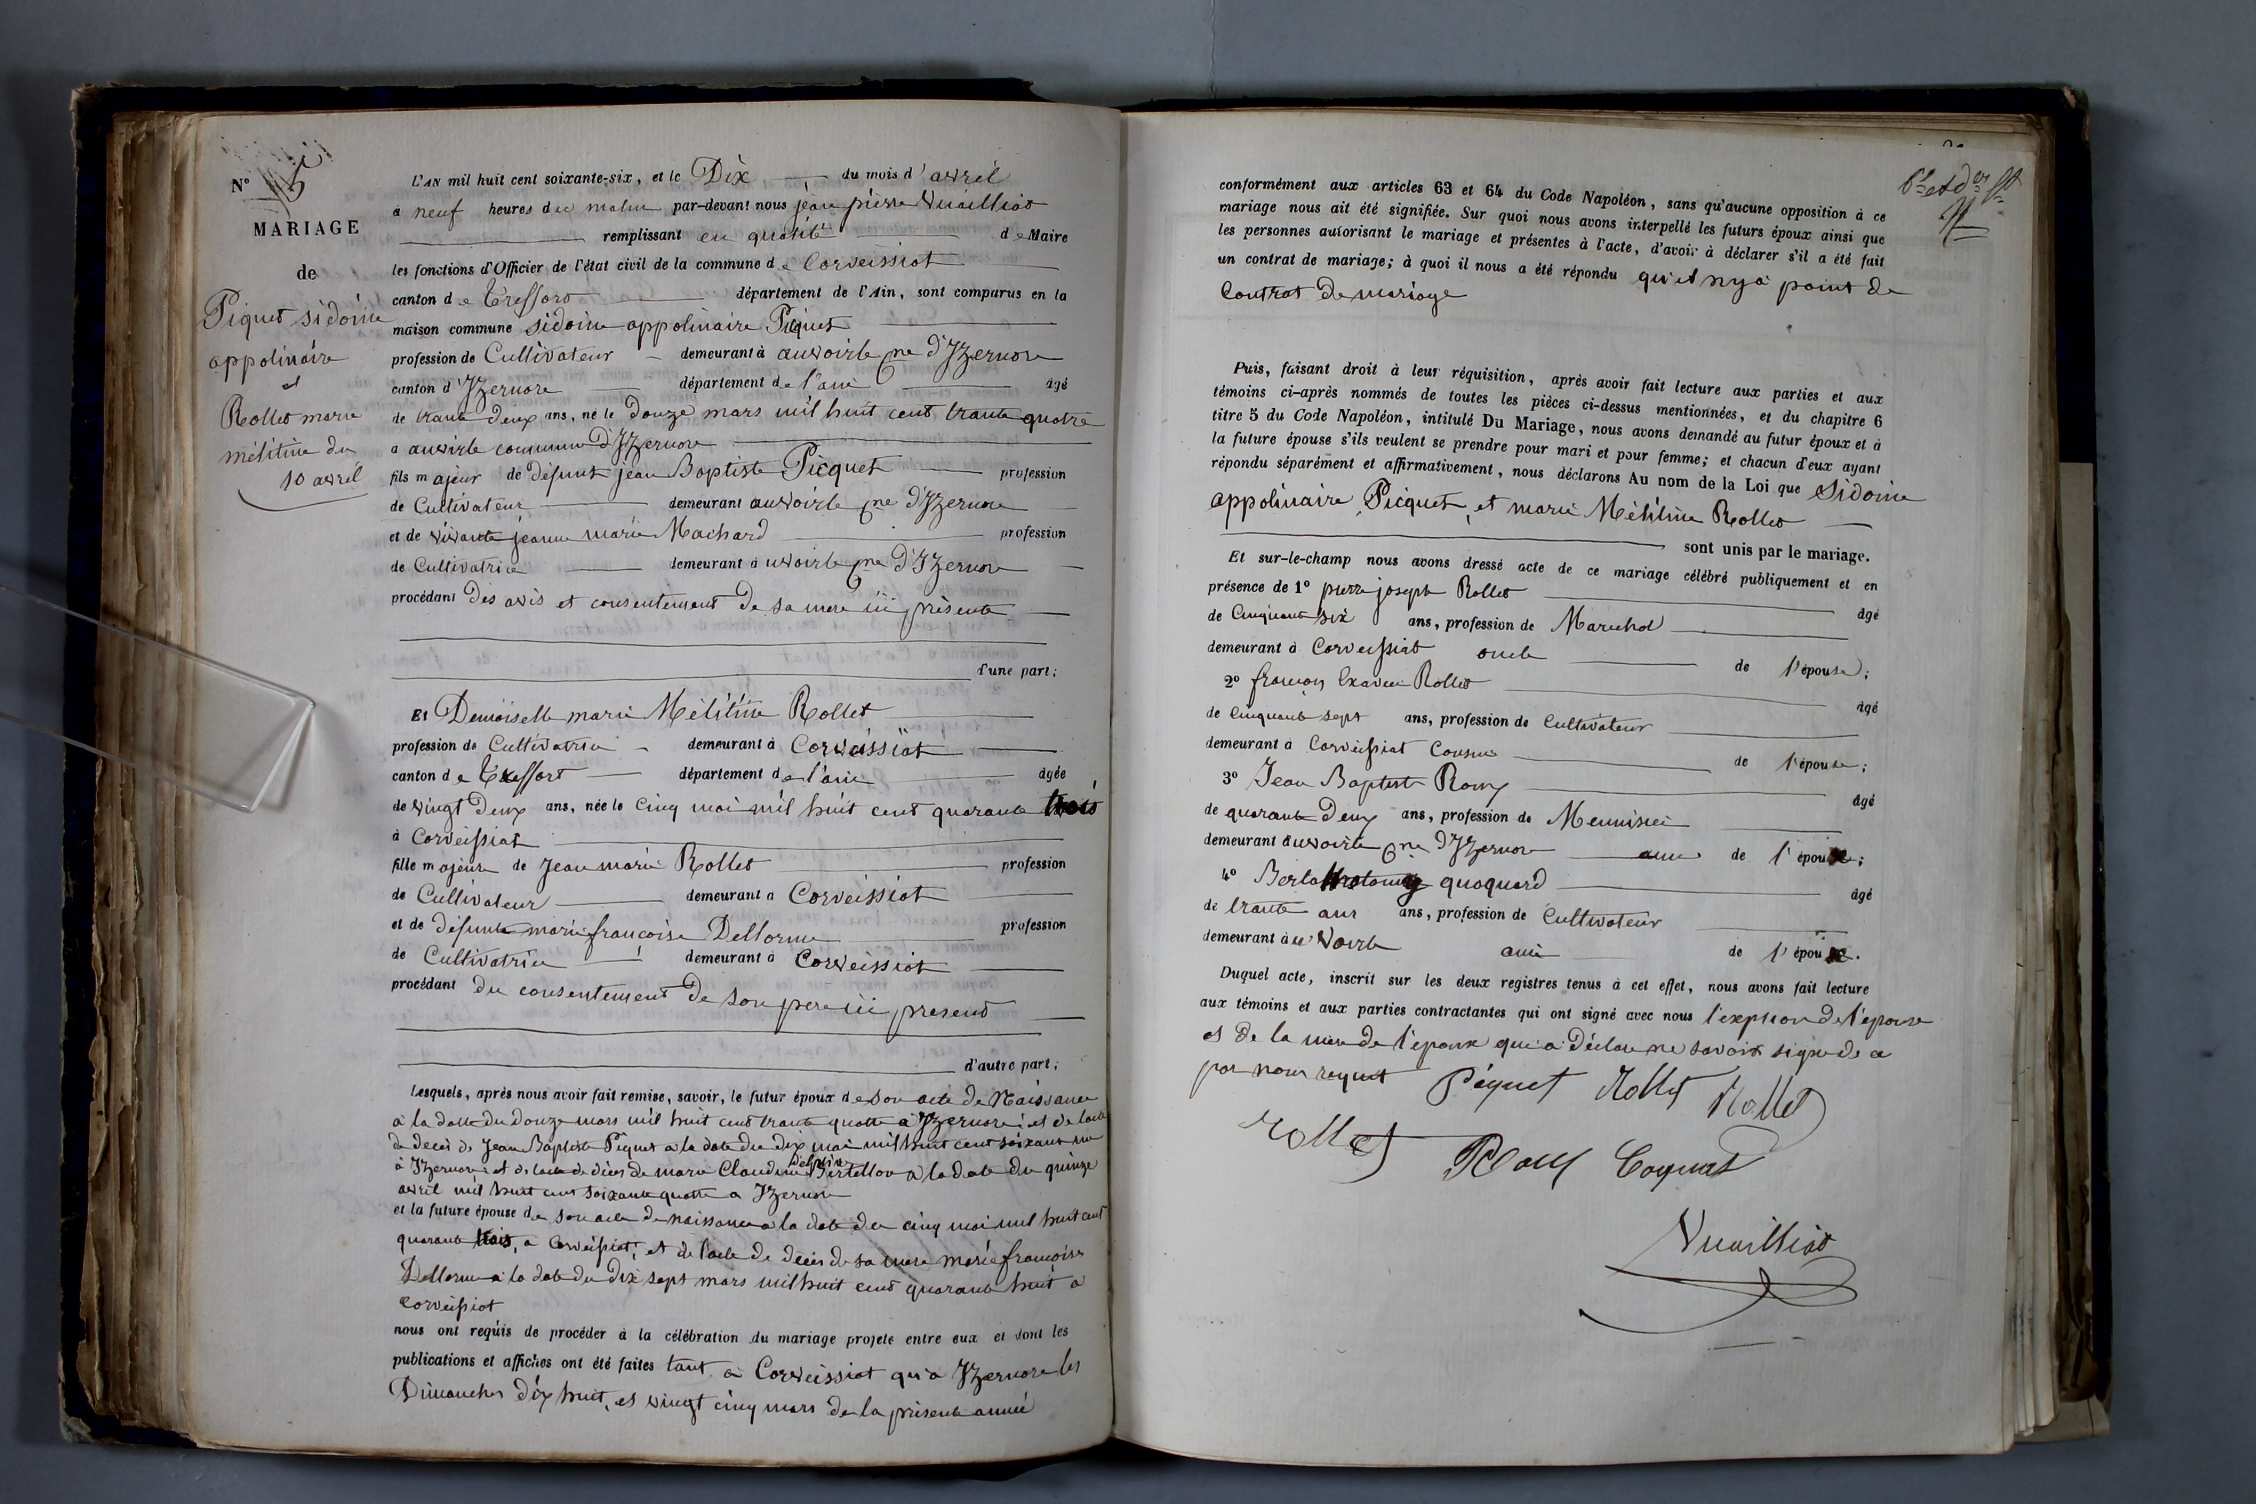 N° 5
MARIAGE
de
Piquet sidoine
appolinaire
et
Rollet marie
mélitine du
10 avril
L'AN mil huit cent soixante-six, et le Dix du mois d'avril
à neuf heures du matin par-devant nous jean pierre Vuailliat
remplissant en qualité de Maire
les fonctions d'Officier de l'état civil de la commune de Corveissiat
canton de Treffort département de l'Ain, sont comparus en la
maison commune sidoine appolinaire Piquet
profession de Cultivateur demeurant à auvoirle cne d'Izernore
canton d'Izernore département de l'ain âgé
de trante deux ans, né le Douze mars mil huit cent trante quatre
a auvirle commune d'Izernore
fils majeur de défunt jean Baptiste Picquet profession
de Cultivateur demeurant auvoirle cne d'Izernore
et de vivante jeanne marie Machard profession
de Cultivatrice demeurant à uvoirle cne d'Izernore
procédant des avis et consentement de sa mere ici présente
d'une part;
Et Demoiselle marie Mélitine Rollet
profession de Cultivatrice demeurant à Corveissiat
canton de Treffort département de l'ain âgée
de vingt deux ans, née le Cinq mai mil huit cent quarante trois
à Corveissiat
fille majeure de Jean marie Rollet profession
de Cultivateur demeurant a Corveissiat
et de défunte marie françoise Dellorme profession
de Cultivatrice demeurant à Corveissiat
procédant du consentement de son pere ici present
d'autre part;
Lesquels, après nous avoir fait remise, savoir, le futur époux de son acte de Naissance
à la date du douze mars mil huit cent trante quatre a Izernore; et de l'acte
de décès de Jean Baptiste Piquet a la date du dix mai mil huit cent soixante un
à Izernore et de l'acte de décès de marie Claudine Bertellon a la date du quinze
avril mil huit cent soixante quatre a Izernore
et la future épouse de son acte de naissance a la date du cinq mai mil huit cent
quarante trois, a Corveissiat; et de l'acte de décès de sa mere marie françoise
Dellorme a la date du dix sept mars mil huit cent quarante huit a
Corveissiat
nous ont requis de procéder à la célébration du mariage projeté entre eux et dont les
publications et affiches ont été faites tant a Corveissiat qu'a Izernore les
Dimanches dix huit, et vingt cinq mars de la présente année
conformément aux articles 63 et 64 du Code Napoléon, sans qu'aucune opposition à ce
mariage nous ait été signifiée. Sur quoi nous avons interpellé les futurs époux ainsi que
les personnes autorisant le mariage et présentes à l'acte, d'avoir à déclarer s'il a été fait
un contrat de mariage; à quoi il nous a été répondu qu'il n'y a point de
Contrat de mariage
Puis, faisant droit à leur réquisition, après avoir fait lecture aux parties et aux
témoins ci-après nommés de toutes les pièces ci-dessus mentionnées, et du chapitre 6
titre 5 du Code Napoléon, intitulé Du Mariage, nous avons demandé au futur époux et à
la future épouse s'ils veulent se prendre pour mari et pour femme; et chacun d'eux ayant
répondu séparément et affirmativement, nous déclarons Au nom de la Loi que Sidoine
appolinaire Picquet, et marie Mélitine Rollet
sont unis par le mariage.
Et sur-le-champ nous avons dressé acte de ce mariage célébré publiquement et en
présence de 1° pierre joseph Rollet âgé
de Cinquante six ans, profession de Marechal
demeurant à Corveissiat oncle de l'épouse;
2° françois Exavier Rollet âgé
de Cinquante sept ans, profession de Cultivateur
demeurant à Corveissiat Cousin de l'épouse;
3° Jean Baptiste Roux âgé
de quarante deux ans, profession de Menuisier
demeurant auvoirle cne d'Izernore ami de l'époux;
4° quoquard âgé
de trante ans ans, profession de Cultivateur
demeurant à uvoirle ami de l'époux.
Duquel acte, inscrit sur les deux registres tenus à cet effet, nous avons fait lecture
aux témoins et aux parties contractantes qui ont signé avec nous l'exption de l'épouse
et de la mere de l'époux qui a déclare ne savoir signe de ce
par nous requit Péquet Rollet Rollet
Rollet
Roux Coquard
Vuailliat